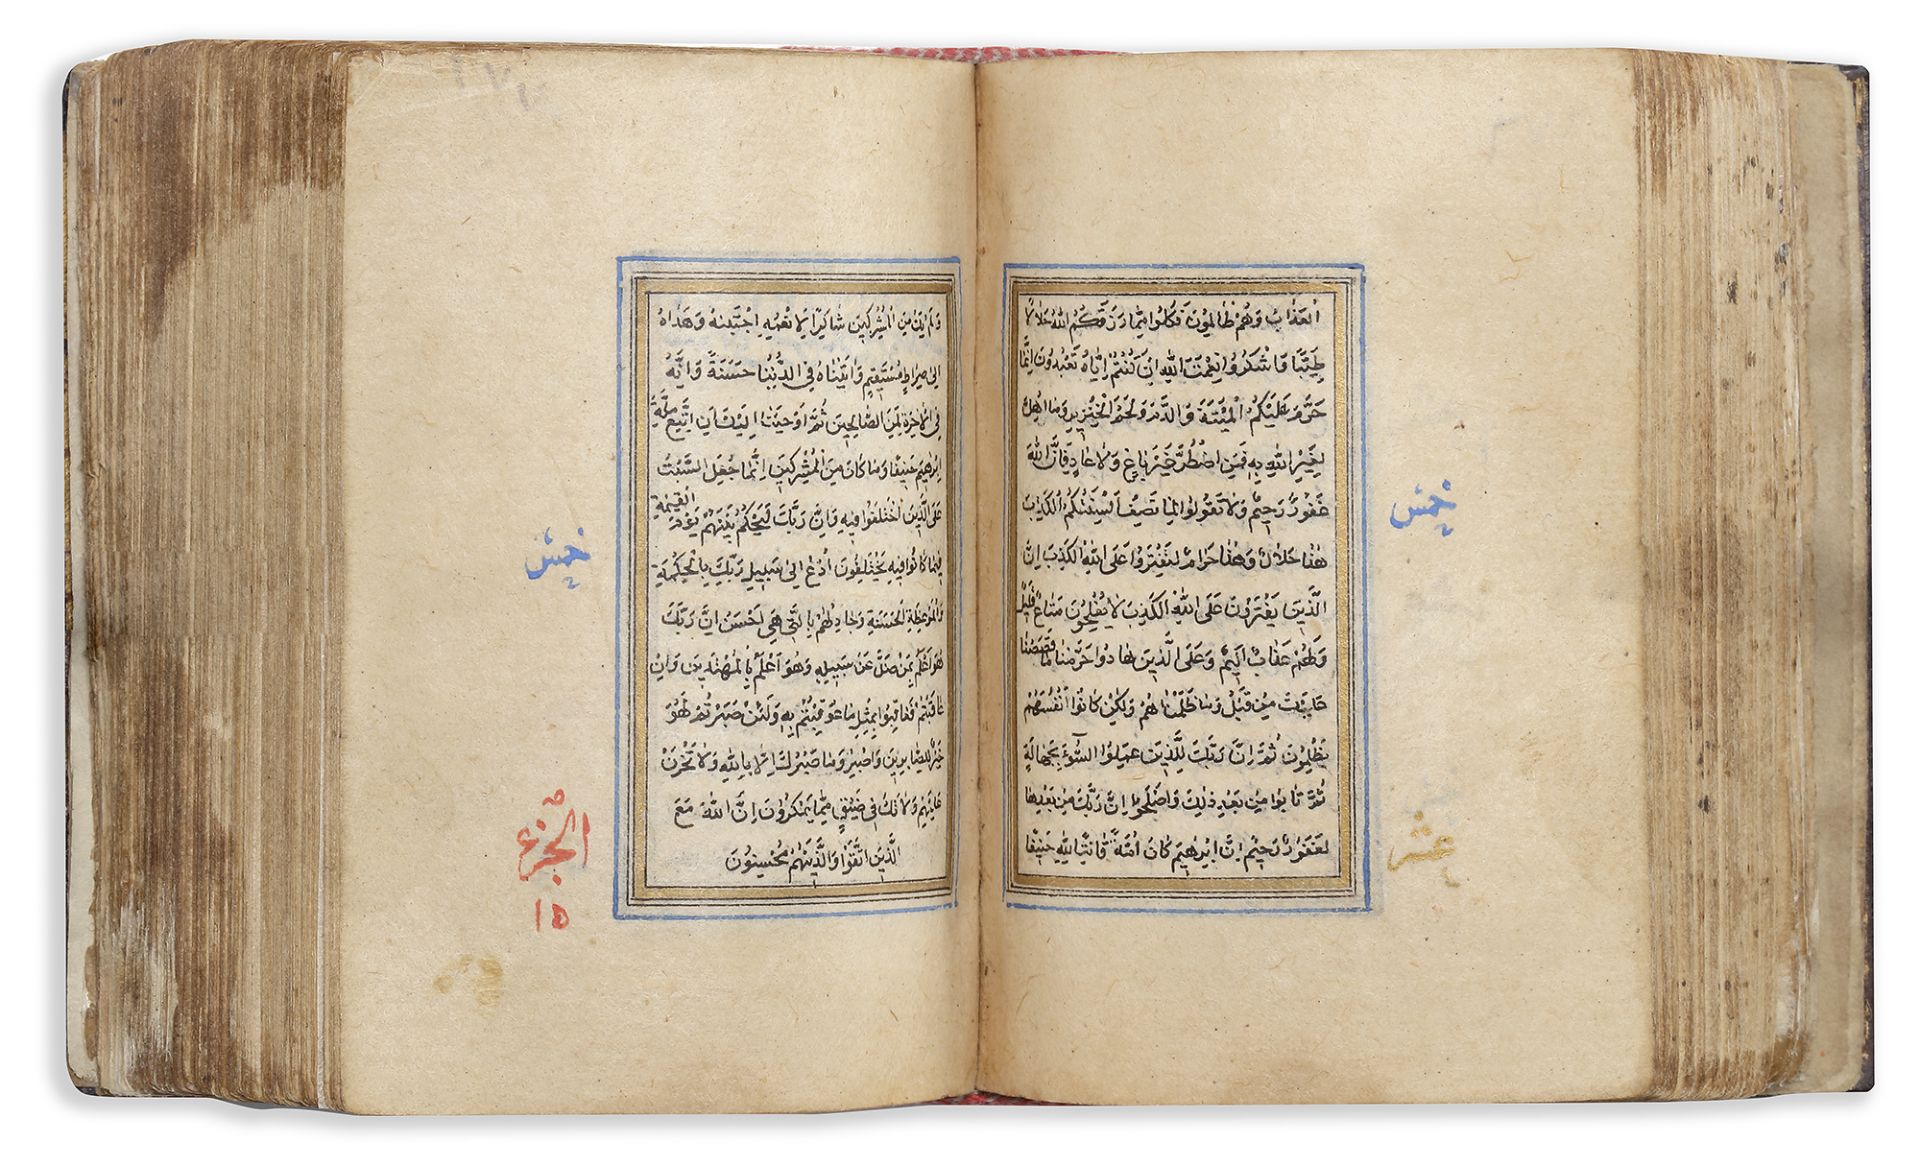 الْعَذَابُ وَهُمْ ظَالِمُونَ فَكُلُوا مِمَّا رَزَقَكُمُ اللّٰهُ حَلَالًا
طَيِّبًا وَاشْكُرُوا نِعْمَتَ اللّٰهِ اِنْ كُنْتُمْ اِيَّاهُ تَعْبُدُونَ اِنَّمَا
حَرَّمَ عَلَيْكُمُ الْمَيْتَةَ وَالدَّمَ وَلَحْمَ الْخِنْزِيرِ وَمَا اُهِلَّ
لِغَيْرِ اللّٰهِ بِهِ فَمَنِ اضْطُرَّ غَيْرَ بَاغٍ وَلَا عَادٍ فَاِنَّ اللّٰهَ
غَفُورٌ رَحِيمٌ وَلَا تَقُولُوا لِمَا تَصِفُ اَلْسِنَتُكُمُ الْكَذِبَ
هٰذَا حَلَالٌ وَهٰذَا حَرَامٌ لِتَفْتَرُوا عَلَى اللّٰهِ الْكَذِبَ اِنَّ
الَّذِينَ يَفْتَرُونَ عَلَى اللّٰهِ الْكَذِبَ لَا يُفْلِحُونَ مَتَاعٌ قَلِيلٌ
وَلَهُمْ عَذَابٌ اَلِيمٌ وَعَلَى الَّذِينَ هَادُوا حَرَّمْنَا مَا قَصَصْنَا
عَلَيْكَ مِنْ قَبْلُ وَمَا ظَلَمْنَاهُمْ وَلٰكِنْ كَانُوا اَنْفُسَهُمْ
يَظْلِمُونَ ثُمَّ اِنَّ رَبَّكَ لِلَّذِينَ عَمِلُوا السُّوٓءَ بِجَهَالَةٍ
ثُمَّ تَابُوا مِنْ بَعْدِ ذٰلِكَ وَاَصْلَحُوا اِنَّ رَبَّكَ مِنْ بَعْدِهَا
لَغَفُورٌ رَحِيمٌ اِنَّ اِبْرٰهِيمَ كَانَ اُمَّةً قَانِتًا لِلّٰهِ حَنِيفًا
خمس
عشر
وَلَمْ يَكُ مِنَ الْمُشْرِكِينَ شَاكِرًا لِاَنْعُمِهِ اجْتَبٰيهُ وَهَدَاهُ
اِلٰى صِرَاطٍ مُسْتَقِيمٍ وَاٰتَيْنَاهُ فِي الدُّنْيَا حَسَنَةً وَاِنَّهُ
فِي الْاٰخِرَةِ لَمِنَ الصَّالِحِينَ ثُمَّ اَوْحَيْنَا اِلَيْكَ اَنِ اتَّبِعْ مِلَّةَ
اِبْرٰهِيمَ حَنِيفًا وَمَا كَانَ مِنَ الْمُشْرِكِينَ اِنَّمَا جُعِلَ السَّبْتُ
عَلَى الَّذِينَ اخْتَلَفُوا فِيهِ وَاِنَّ رَبَّكَ لَيَحْكُمُ بَيْنَهُمْ يَوْمَ الْقِيٰمَةِ
فِيمَا كَانُوا فِيهِ يَخْتَلِفُونَ اُدْعُ اِلٰى سَبِيلِ رَبِّكَ بِالْحِكْمَةِ
وَالْمَوْعِظَةِ الْحَسَنَةِ وَجَادِلْهُمْ بِالَّتِي هِيَ اَحْسَنُ اِنَّ رَبَّكَ
هُوَ اَعْلَمُ بِمَنْ ضَلَّ عَنْ سَبِيلِهِ وَهُوَ اَعْلَمُ بِالْمُهْتَدِينَ وَاِنْ
عَاقَبْتُمْ فَعَاقِبُوا بِمِثْلِ مَا عُوقِبْتُمْ بِهِ وَلَئِنْ صَبَرْتُمْ لَهُوَ
خَيْرٌ لِلصَّابِرِينَ وَاصْبِرْ وَمَا صَبْرُكَ اِلَّا بِاللّٰهِ وَلَا تَحْزَنْ
عَلَيْهِمْ وَلَا تَكُ فِي ضَيْقٍ مِمَّا يَمْكُرُونَ اِنَّ اللّٰهَ مَعَ
الَّذِينَ اتَّقَوْا وَالَّذِينَ هُمْ مُحْسِنُونَ
خمس
الجزء
١٥